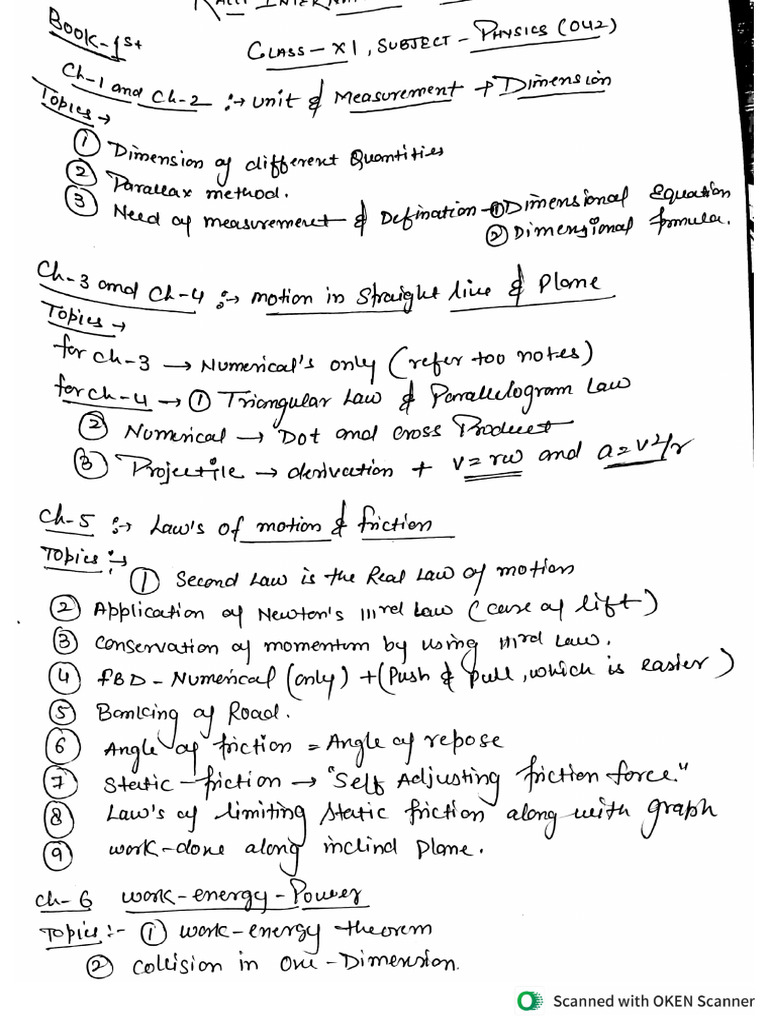 Book-1st
Class-XI, Subject-Physics (042)
Ch-1 and Ch-2 :→ unit & Measurement + Dimension
Topics →
① Dimension of different Quantities
② Parallax method.
③ Need of measurement & Defination → ① Dimensional Equation
② Dimensional formula.
Ch-3 and Ch-4 :→ motion in straight line & Plane
Topics →
for ch-3 → Numerical's only (refer too notes)
for ch-4 → ① Triangular Law & Parallelogram Law
② Numerical → Dot and cross Product
③ Projectile → derivation + v=rω and a=v²/r
Ch-5 :→ Law's of motion & friction
Topics :→
① Second Law is the Real Law of motion
② Application of Newton's IIIrd Law (case of lift)
③ Conservation of momentum by using IIIrd Law.
④ FBD - Numerical (only) + (Push & pull, which is easier)
⑤ Banking of Road.
⑥ Angle of friction = Angle of repose
⑦ Static-friction → "Self Adjusting friction force."
⑧ Law's of limiting static friction along with graph
⑨ work-done along inclind plane.
Ch-6 work-energy-Power
Topics :- ① work-energy theorem
② Collision in One-Dimension.
Scanned with OKEN Scanner